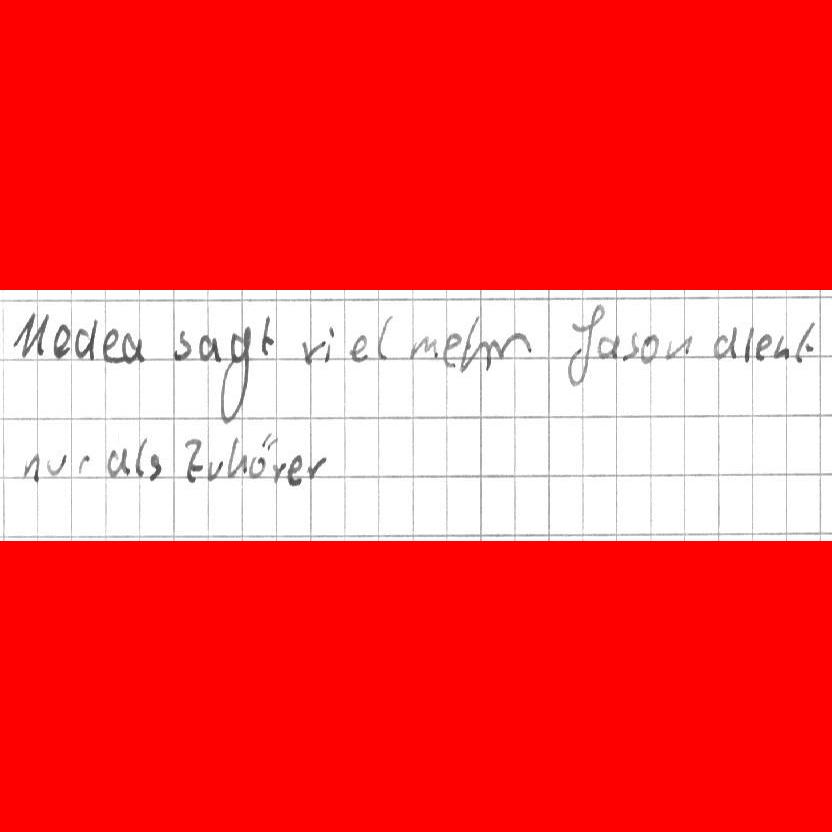 Medea sagt viel mehr Jason dient
nur als Zuhörer